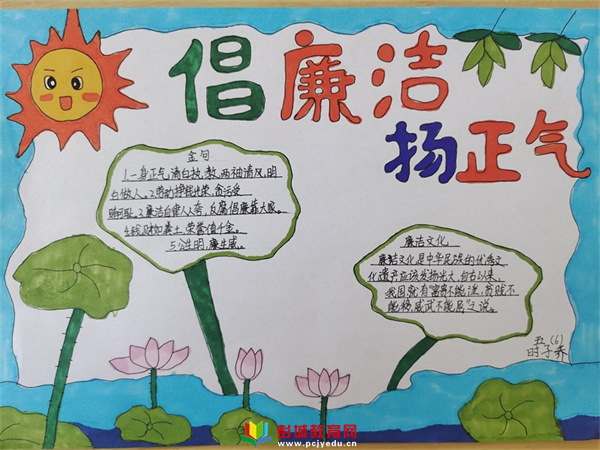 倡廉洁
扬正气
金句
1.一身正气,清白执教,两袖清风,明
白做人。2.劳动挣钱光荣,贪污受
贿可耻。3.廉洁自律人人夸,反腐倡廉靠大家。
4.钱财如粪土,荣誉值千金。
5.公生明,廉生威。
廉洁文化
廉洁文化是中华民族的优秀文
化遗产应该发扬光大,自古以来,
我国就有"富贵不能淫,贫贱不
能移,威武不能屈"之说。
五(6)
时子乔
彭城教育网
www.pcjyedu.cn